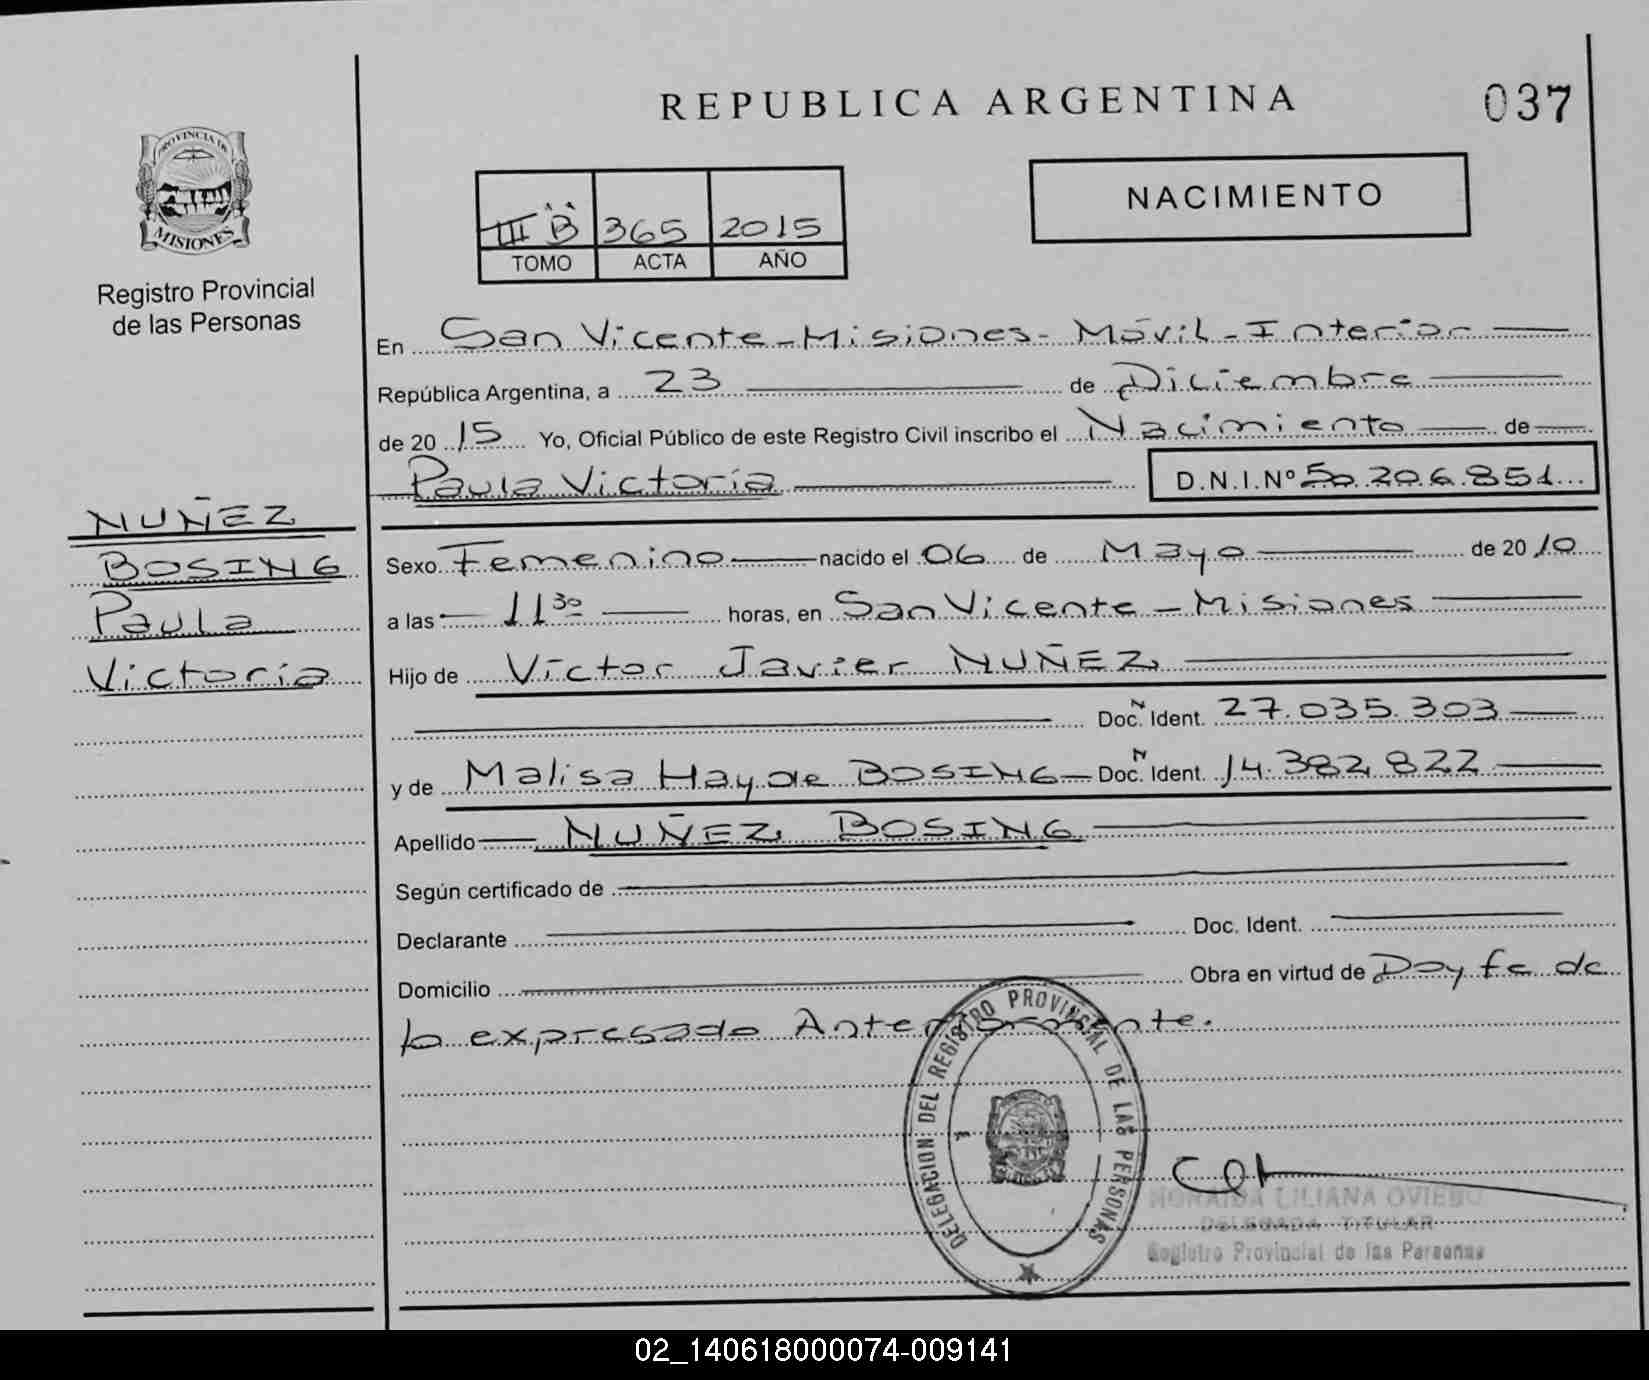 REPUBLICA ARGENTINA
037
PROVINCIA DE
MISIONES
Registro Provincial
de las Personas
III "B" 365 2015
TOMO ACTA AÑO
NACIMIENTO
En San Vicente - Misiones - Móvil - Interior
República Argentina, a 23 de Diciembre
de 20 15 Yo, Oficial Público de este Registro Civil inscribo el Nacimiento de
Paula Victoria D.N.I.Nº 50.206.851
NUÑEZ
BOSING
Paula
Victoria
Sexo Femenino nacido el 06 de Mayo de 20 10
a las 11 30 horas, en San Vicente - Misiones
Hijo de Victor Javier NUÑEZ
Doc. Ident. Nº 27.035.303
y de Malisa Hayde BOSING Doc. Ident. Nº 14.382.822
Apellido NUÑEZ BOSING
Según certificado de
Declarante Doc. Ident.
Domicilio Obra en virtud de Doy fe de
lo expresado Anteriormente.
DELEGACION DEL REGISTRO PROVINCIAL DE LAS PERSONAS
LILIANA OVIEDO
DELEGADA TITULAR
Registro Provincial de las Personas
02_140618000074-009141